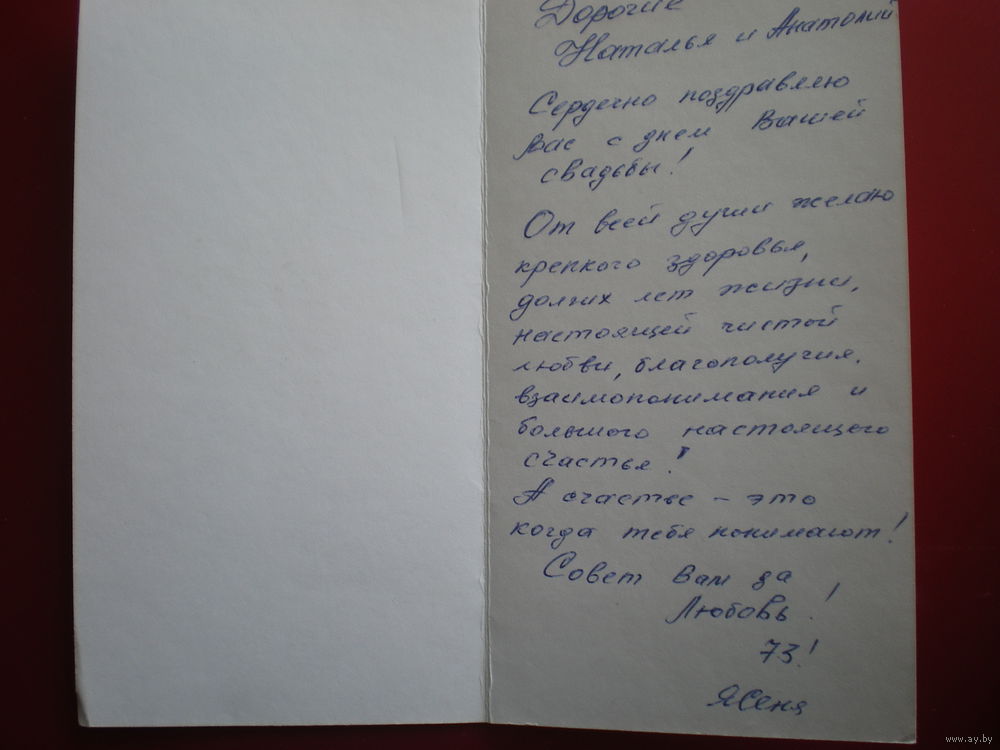 Дорогие
Наталья и Анатолий
Сердечно поздравляю
вас с днем Вашей
свадьбы!
От всей души желаю
крепкого здоровья,
долгих лет жизни,
настоящей чистой
любви, благополучия,
взаимопонимания и
большого настоящего
счастья!
А счастье - это
когда тебя понимают!
Совет Вам да
Любовь!
73!
Ясеня
www.ay.by